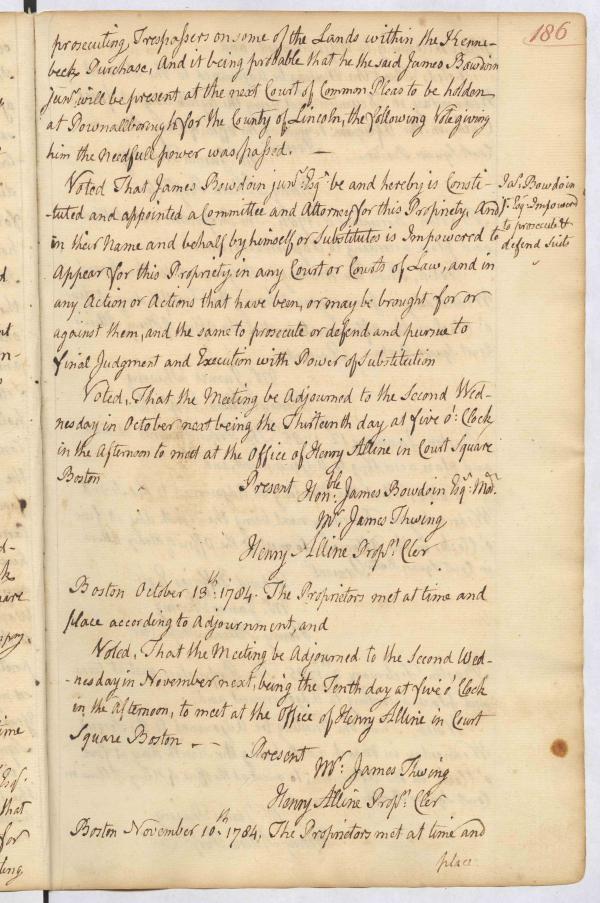 186
prosecuting Trespassers on some of the Lands within the Kenne-
beck Purchase, And it being probable that he the said James Bowdoin
Junr. will be present at the next Court of Common Pleas to be holden
at Pownallborough for the County of Lincoln, the following Vote giving
him the needfull power was passed. —
Voted That James Bowdoin junr. Esqr. be and hereby is Consti-
tuted and appointed a Committee and Attorney for this Propriety, And
in their Name and behalf by himself or Substitutes is Impowered to
Appear for this Propriety in any Court or Courts of Law, and in
any Action or Actions that have been, or may be brought for or
against them, and the same to prosecute or defend and pursue to
final Judgment and Execution with Power of Substitution
Jas. Bowdoin
Jr. Esqr. Impowerd
to prosecute &
defend Suits
Voted, That the Meeting be Adjourned to the Second Wed-
nesday in October next being the Thirteenth day at five o'. Clock
in the Afternoon to meet at the Office of Henry Alline in Court Square
Boston
Present Honble. James Bowdoin Esqr. Modr.
Mr. James Thwing
Henry Alline Propr. Cler
Boston October 13th. 1784. The Proprietors met at time and
place according to Adjournment, and
Voted, That the Meeting be Adjourned to the Second Wed-
-nesday in November next, being the Tenth day at five o' Clock
in the Afternoon, to meet at the Office of Henry Alline in Court
Square Boston — —
Present
Mr. James Thwing
Henry Alline Propr. Cler
Boston November 10th. 1784, The Proprietors met at time and
place